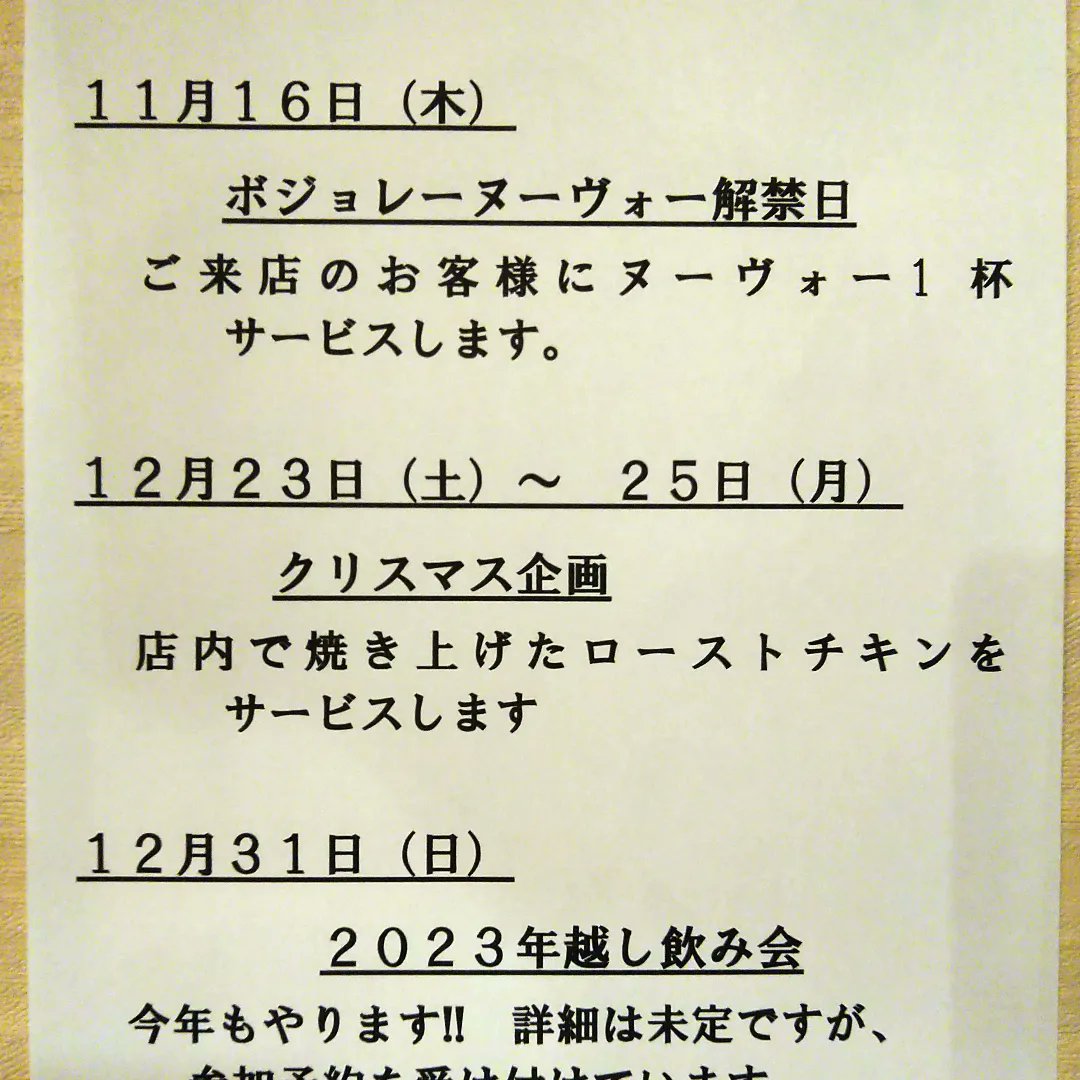 11月16日（木）
ボジョレーヌーヴォー解禁日
ご来店のお客様にヌーヴォー1 杯
サービスします。
12月23日（土）～　25日（月）
クリスマス企画
店内で焼き上げたローストチキンを
サービスします
12月31日（日）
2023年越し飲み会
今年もやります!!　詳細は未定ですが、
参加予約を受け付けています